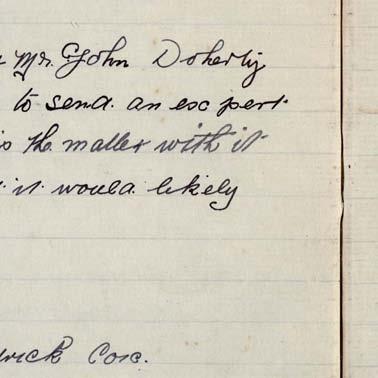 Mr. John Doherty
to send an expert
is the matter with it
it would likely
wick Cox.